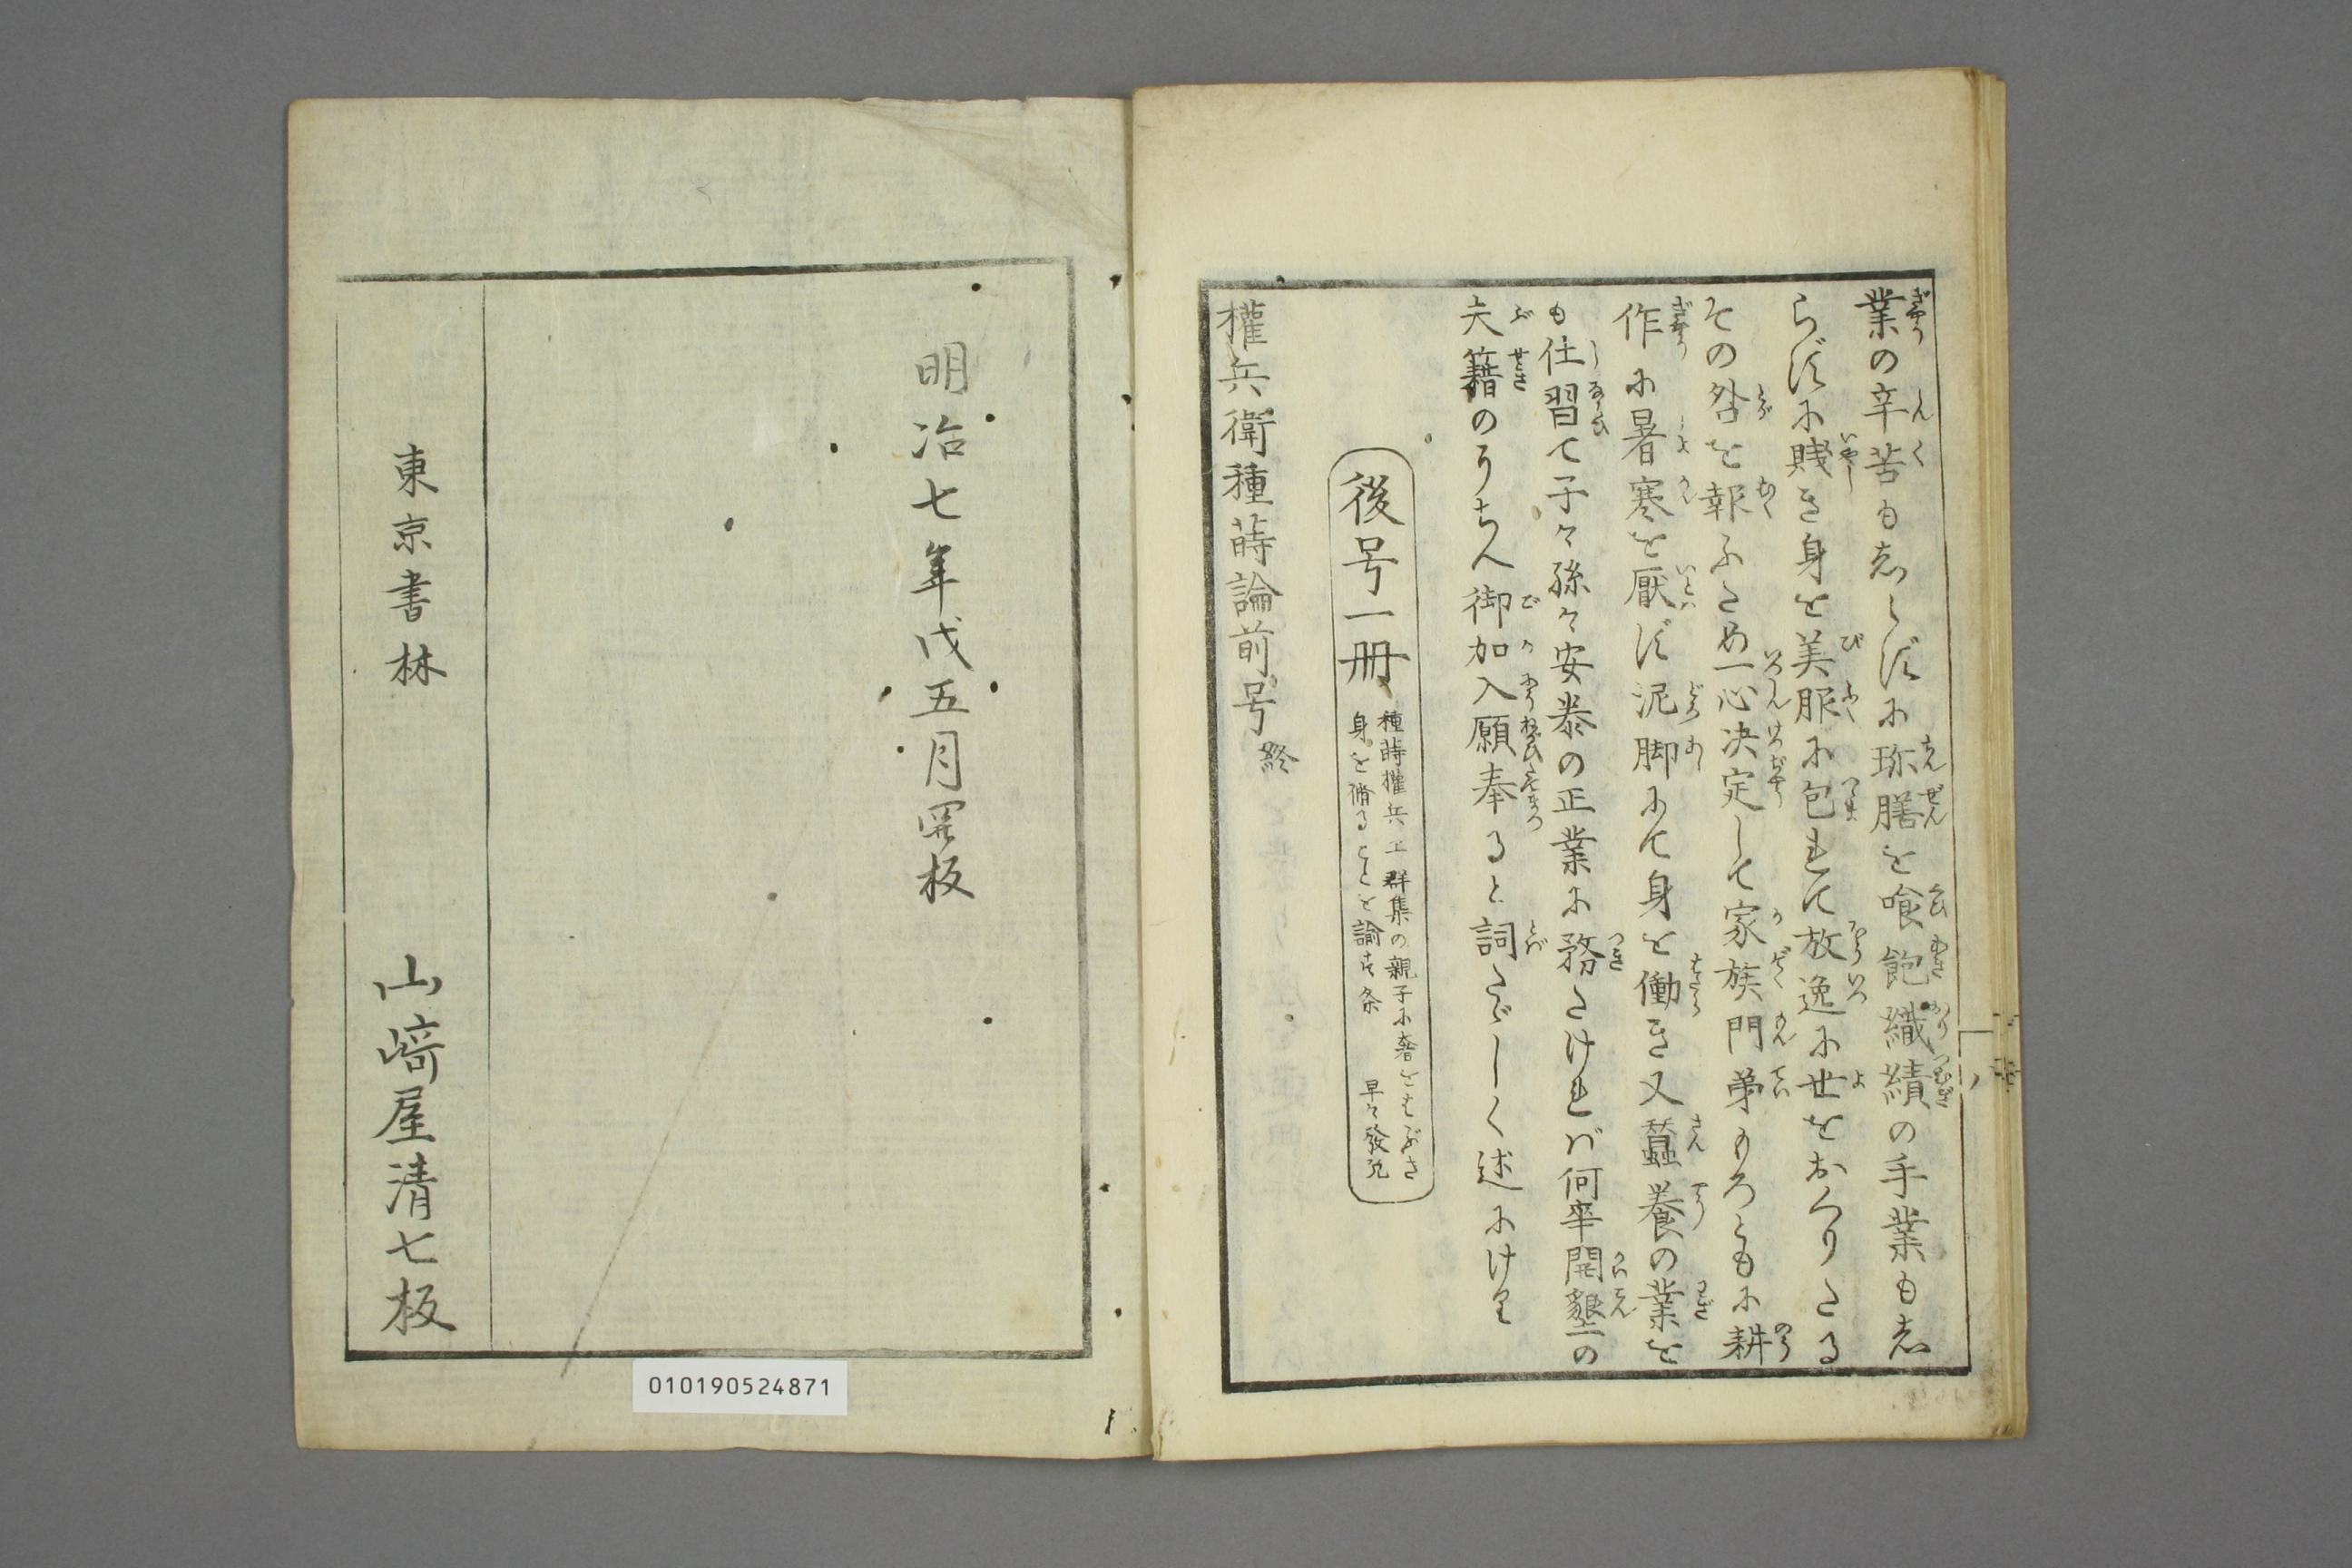 業の辛苦も志らずに珎膳を喰飽織績の手業も志
らずに賤き身を美服に包れて放逸に世をおくりたる
その咎を報ふため一心决定して家族門弟もろともに耕
作に暑寒を厭ず泥脚にて身を働き又蠶養の業を
も仕習て子々孫々安泰の正業に務たければ何卒開墾の
夫籍のうちへ御加入願奉ると詞たゞしく述にけり
後号一冊
種蒔權兵工群集の親子に奢をはぶき
身を脩ることを諭す条 早々發兌
權兵衛種蒔論前号 終
明治七年戊五月開板
東京書林 山﨑屋清七板
010190524871